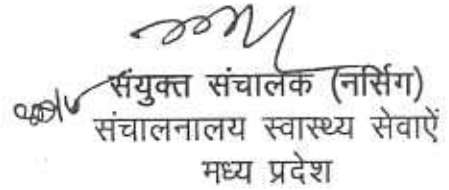 संयुक्त संचालक (नर्सिग)
संचालनालय स्वास्थ्य सेवाऐं
मध्य प्रदेश